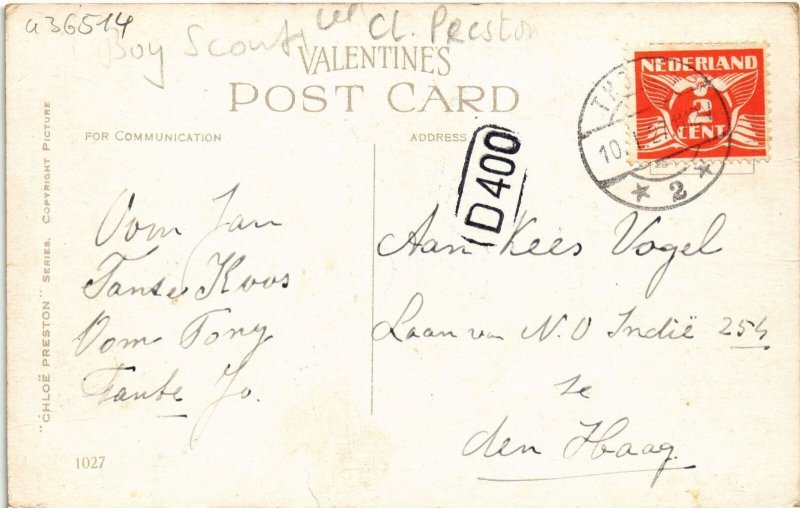 a36514
Boy Scout Cl. Preston
VALENTINES
POST CARD
FOR COMMUNICATION
ADDRESS
D400
NEDERLAND
2
CENT
10.
2
"CHLOË PRESTON" SERIES. COPYRIGHT PICTURE
Oom Jan
Tante Koos
Oom Tony
Tante Jo.
1027
Aan Kees Vogel
Laan van N.O Indië 254
te
den Haag.